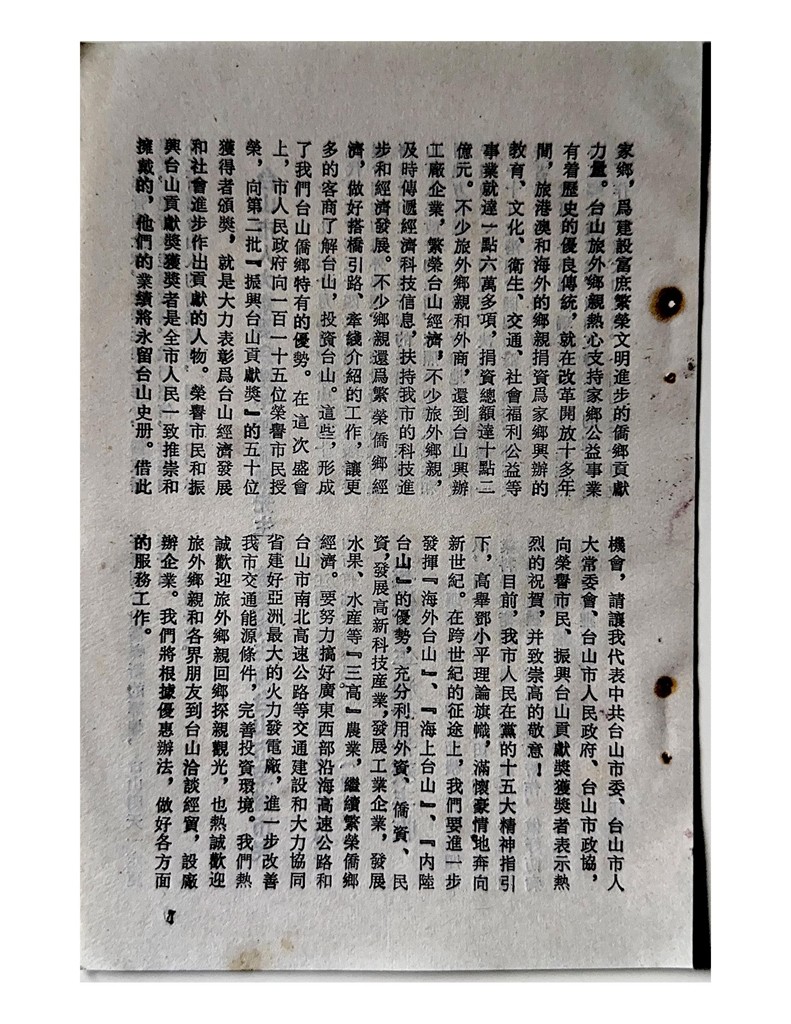 家鄉，爲建設富庶繁榮文明進步的僑鄉貢獻
力量。台山旅外鄉親熱心支持家鄉公益事業
有着歷史的優良傳統，就在改革開放十多年
間，旅港澳和海外的鄉親捐資爲家鄉興辦的
教育、文化、衛生、交通、社會福利公益等
事業就達一點六萬多項，捐資總額達十點二
億元。不少旅外鄉親和外商，還到台山興辦
工廠企業，繁榮台山經濟，不少旅外鄉親，
及時傳遞經濟科技信息，扶持我市的科技進
步和經濟發展。不少鄉親還爲繁榮僑鄉經
濟，做好搭橋引路、牽綫介紹的工作，讓更
多的客商了解台山，投資台山。這些，形成
了我們台山僑鄉特有的優勢。在這次盛會
上，市人民政府向一百一十五位榮譽市民授
榮，向第二批『振興台山貢獻獎』的五十位
獲得者頒獎，就是大力表彰爲台山經濟發展
和社會進步作出貢獻的人物。榮譽市民和振
興台山貢獻獎獲獎者是全市人民一致推崇和
擁戴的，他們的業績將永留台山史册。借此
機會，請讓我代表中共台山市委、台山市人
大常委會、台山市人民政府、台山市政協，
向榮譽市民、振興台山貢獻獎獲獎者表示熱
烈的祝賀，并致崇高的敬意！
目前，我市人民在黨的十五大精神指引
下，高舉鄧小平理論旗幟，滿懷豪情地奔向
新世紀。在跨世紀的征途上，我們要進一步
發揮『海外台山』、『海上台山』、『內陸
台山』的優勢，充分利用外資、僑資、民
資，發展高新科技産業，發展工業企業，發展
水果、水産等『三高』農業，繼續繁榮僑鄉
經濟。要努力搞好廣東西部沿海高速公路和
台山市南北高速公路等交通建設和大力協同
省建好亞洲最大的火力發電廠，進一步改善
我市交通能源條件，完善投資環境。我們熱
誠歡迎旅外鄉親回鄉探親觀光，也熱誠歡迎
旅外鄉親和各界朋友到台山洽談經貿，設廠
辦企業。我們將根據優惠辦法，做好各方面
的服務工作。